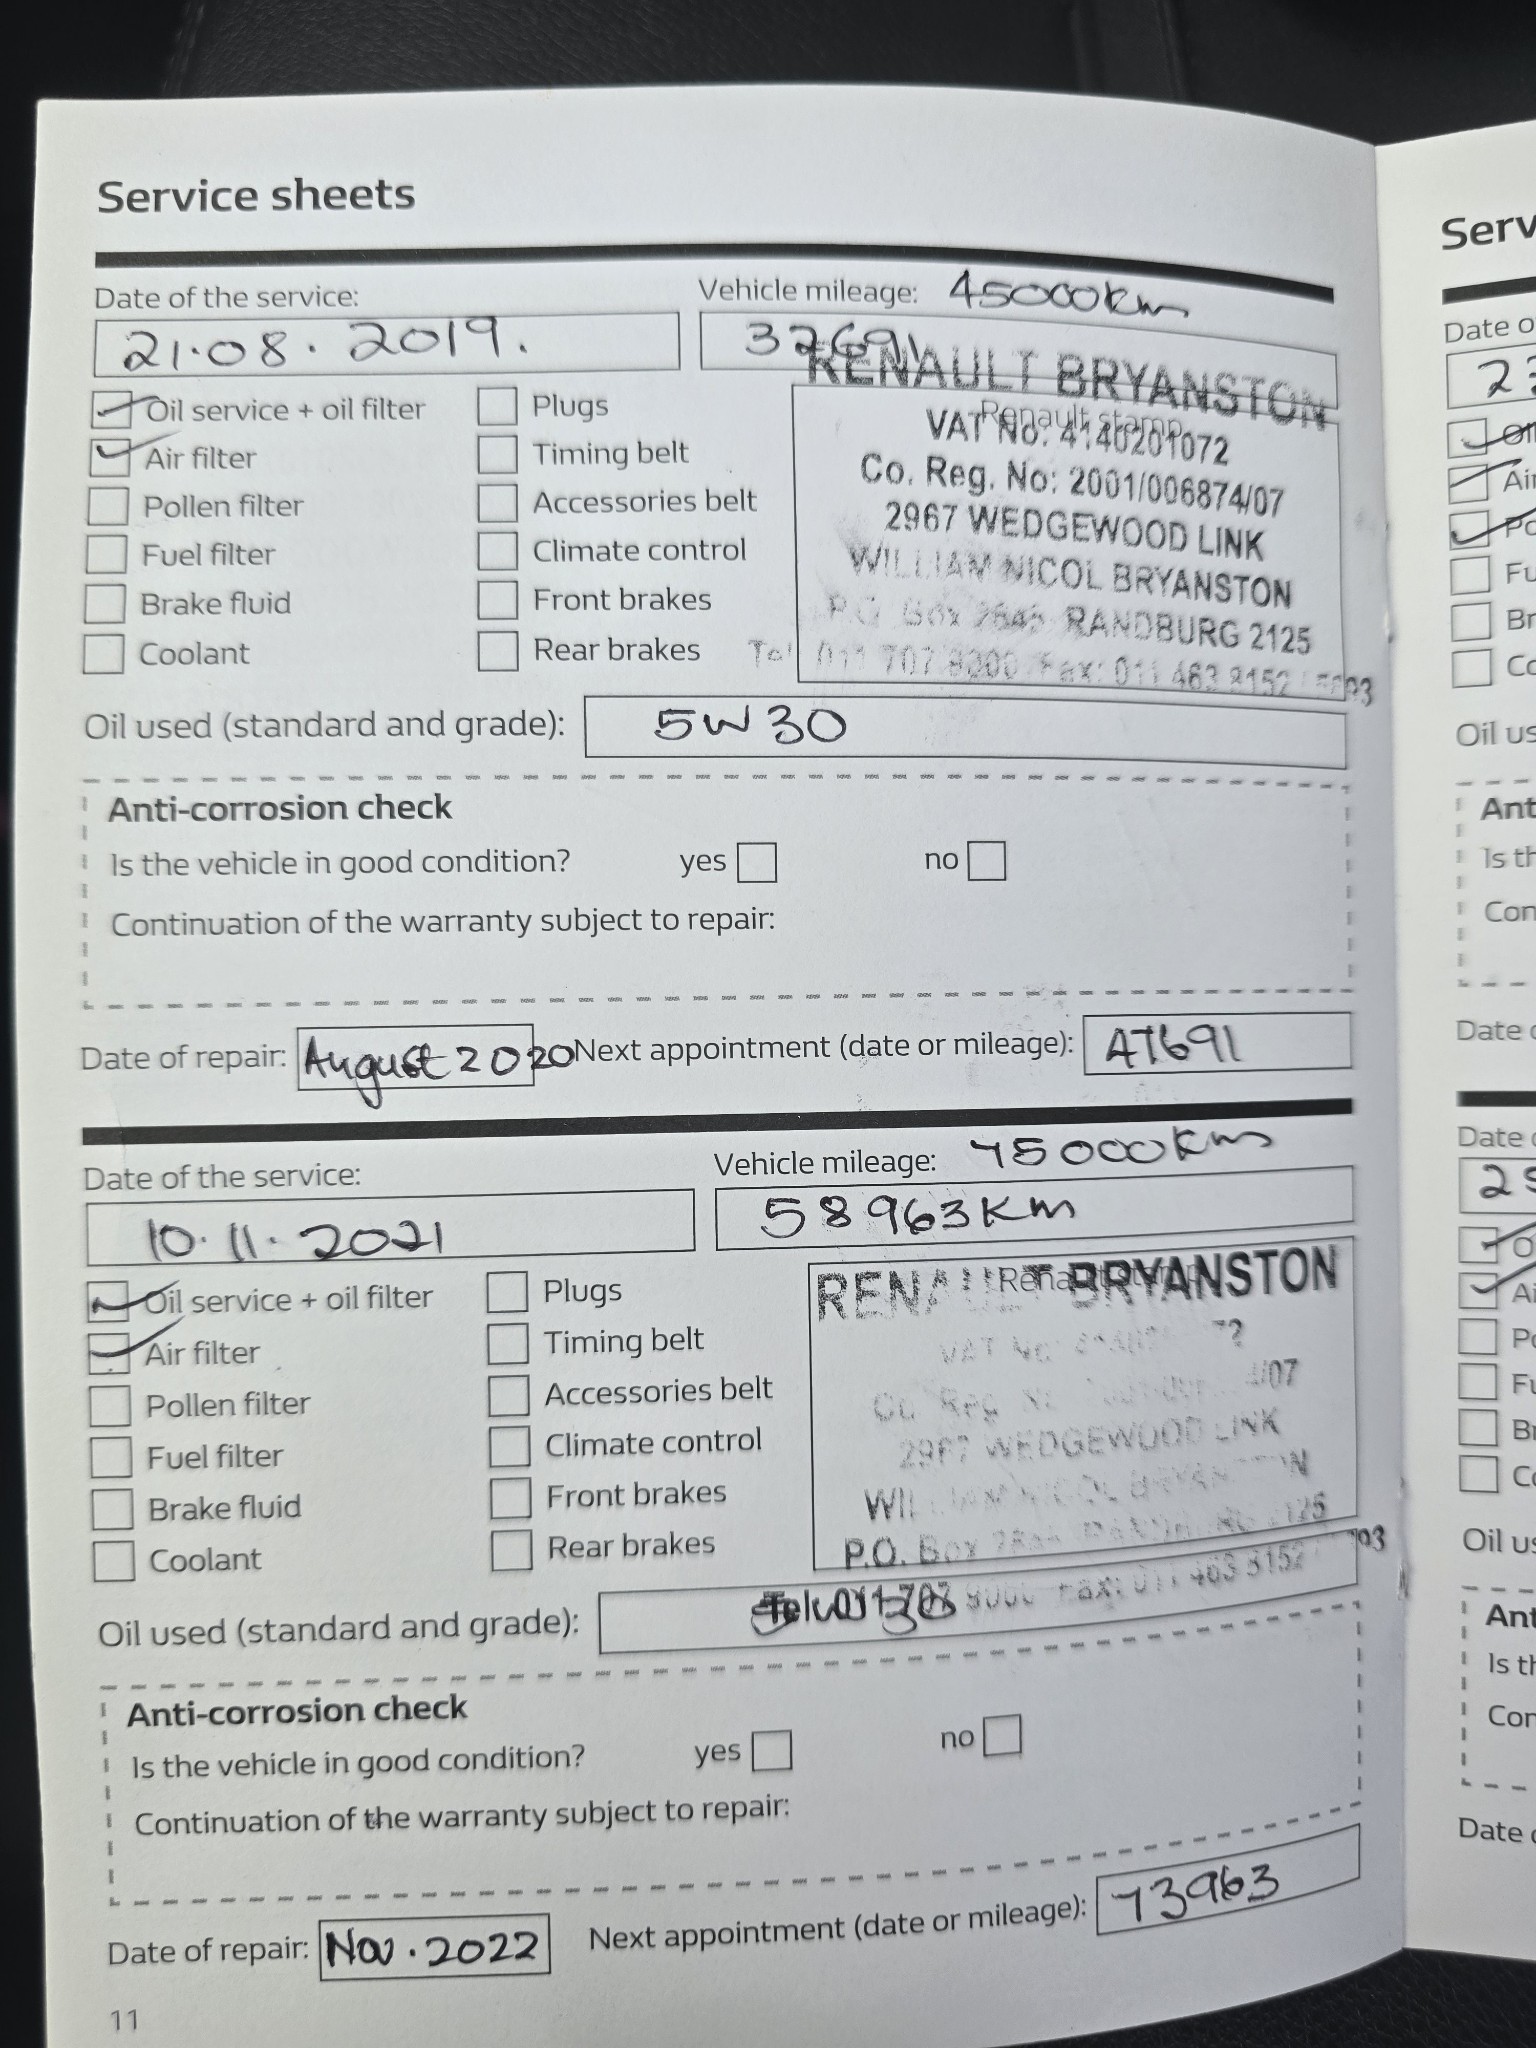 Service sheets
Date of the service:
Vehicle mileage: 45000km
21.08.2019.
32691
RENAULT BRYANSTON
Renault stamp
VAT No: 4140201072
Co. Reg. No: 2001/006874/07
2967 WEDGEWOOD LINK
WILLIAM NICOL BRYANSTON
P.O. Box RANDBURG 2125
Tel 011 707 Fax: 011 463 8152
Oil service + oil filter
Plugs
Air filter
Timing belt
Pollen filter
Accessories belt
Fuel filter
Climate control
Brake fluid
Front brakes
Coolant
Rear brakes
Oil used (standard and grade): 5W30
Anti-corrosion check
Is the vehicle in good condition? yes no
Continuation of the warranty subject to repair:
Date of repair: August 2020 Next appointment (date or mileage): 47691
Date of the service:
Vehicle mileage: 75000Km
10.11.2021
58963Km
RENAULT BRYANSTON
2967 WEDGEWOOD LINK
P.O. Box
Fax: 011 463 8152
Oil service + oil filter
Plugs
Air filter
Timing belt
Pollen filter
Accessories belt
Fuel filter
Climate control
Brake fluid
Front brakes
Coolant
Rear brakes
Oil used (standard and grade):
Anti-corrosion check
Is the vehicle in good condition? yes no
Continuation of the warranty subject to repair:
Date of repair: Nov.2022 Next appointment (date or mileage): 73963
11
Serv
Date o
Oil us
Ant
Is th
Con
Date o
Date o
Oil us
Ant
Is th
Con
Date o